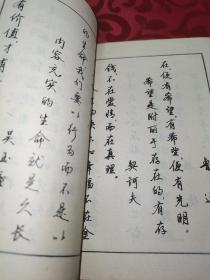 有价值,才有
吴玉章
内容充实的生命就是久长
的生命。我们要以行为而不是以
幸福不在金
钱,不在爱情,而在真理。
契诃夫
希望是附丽于存在的,有存
在,便有希望,有希望便有光明。
鲁迅